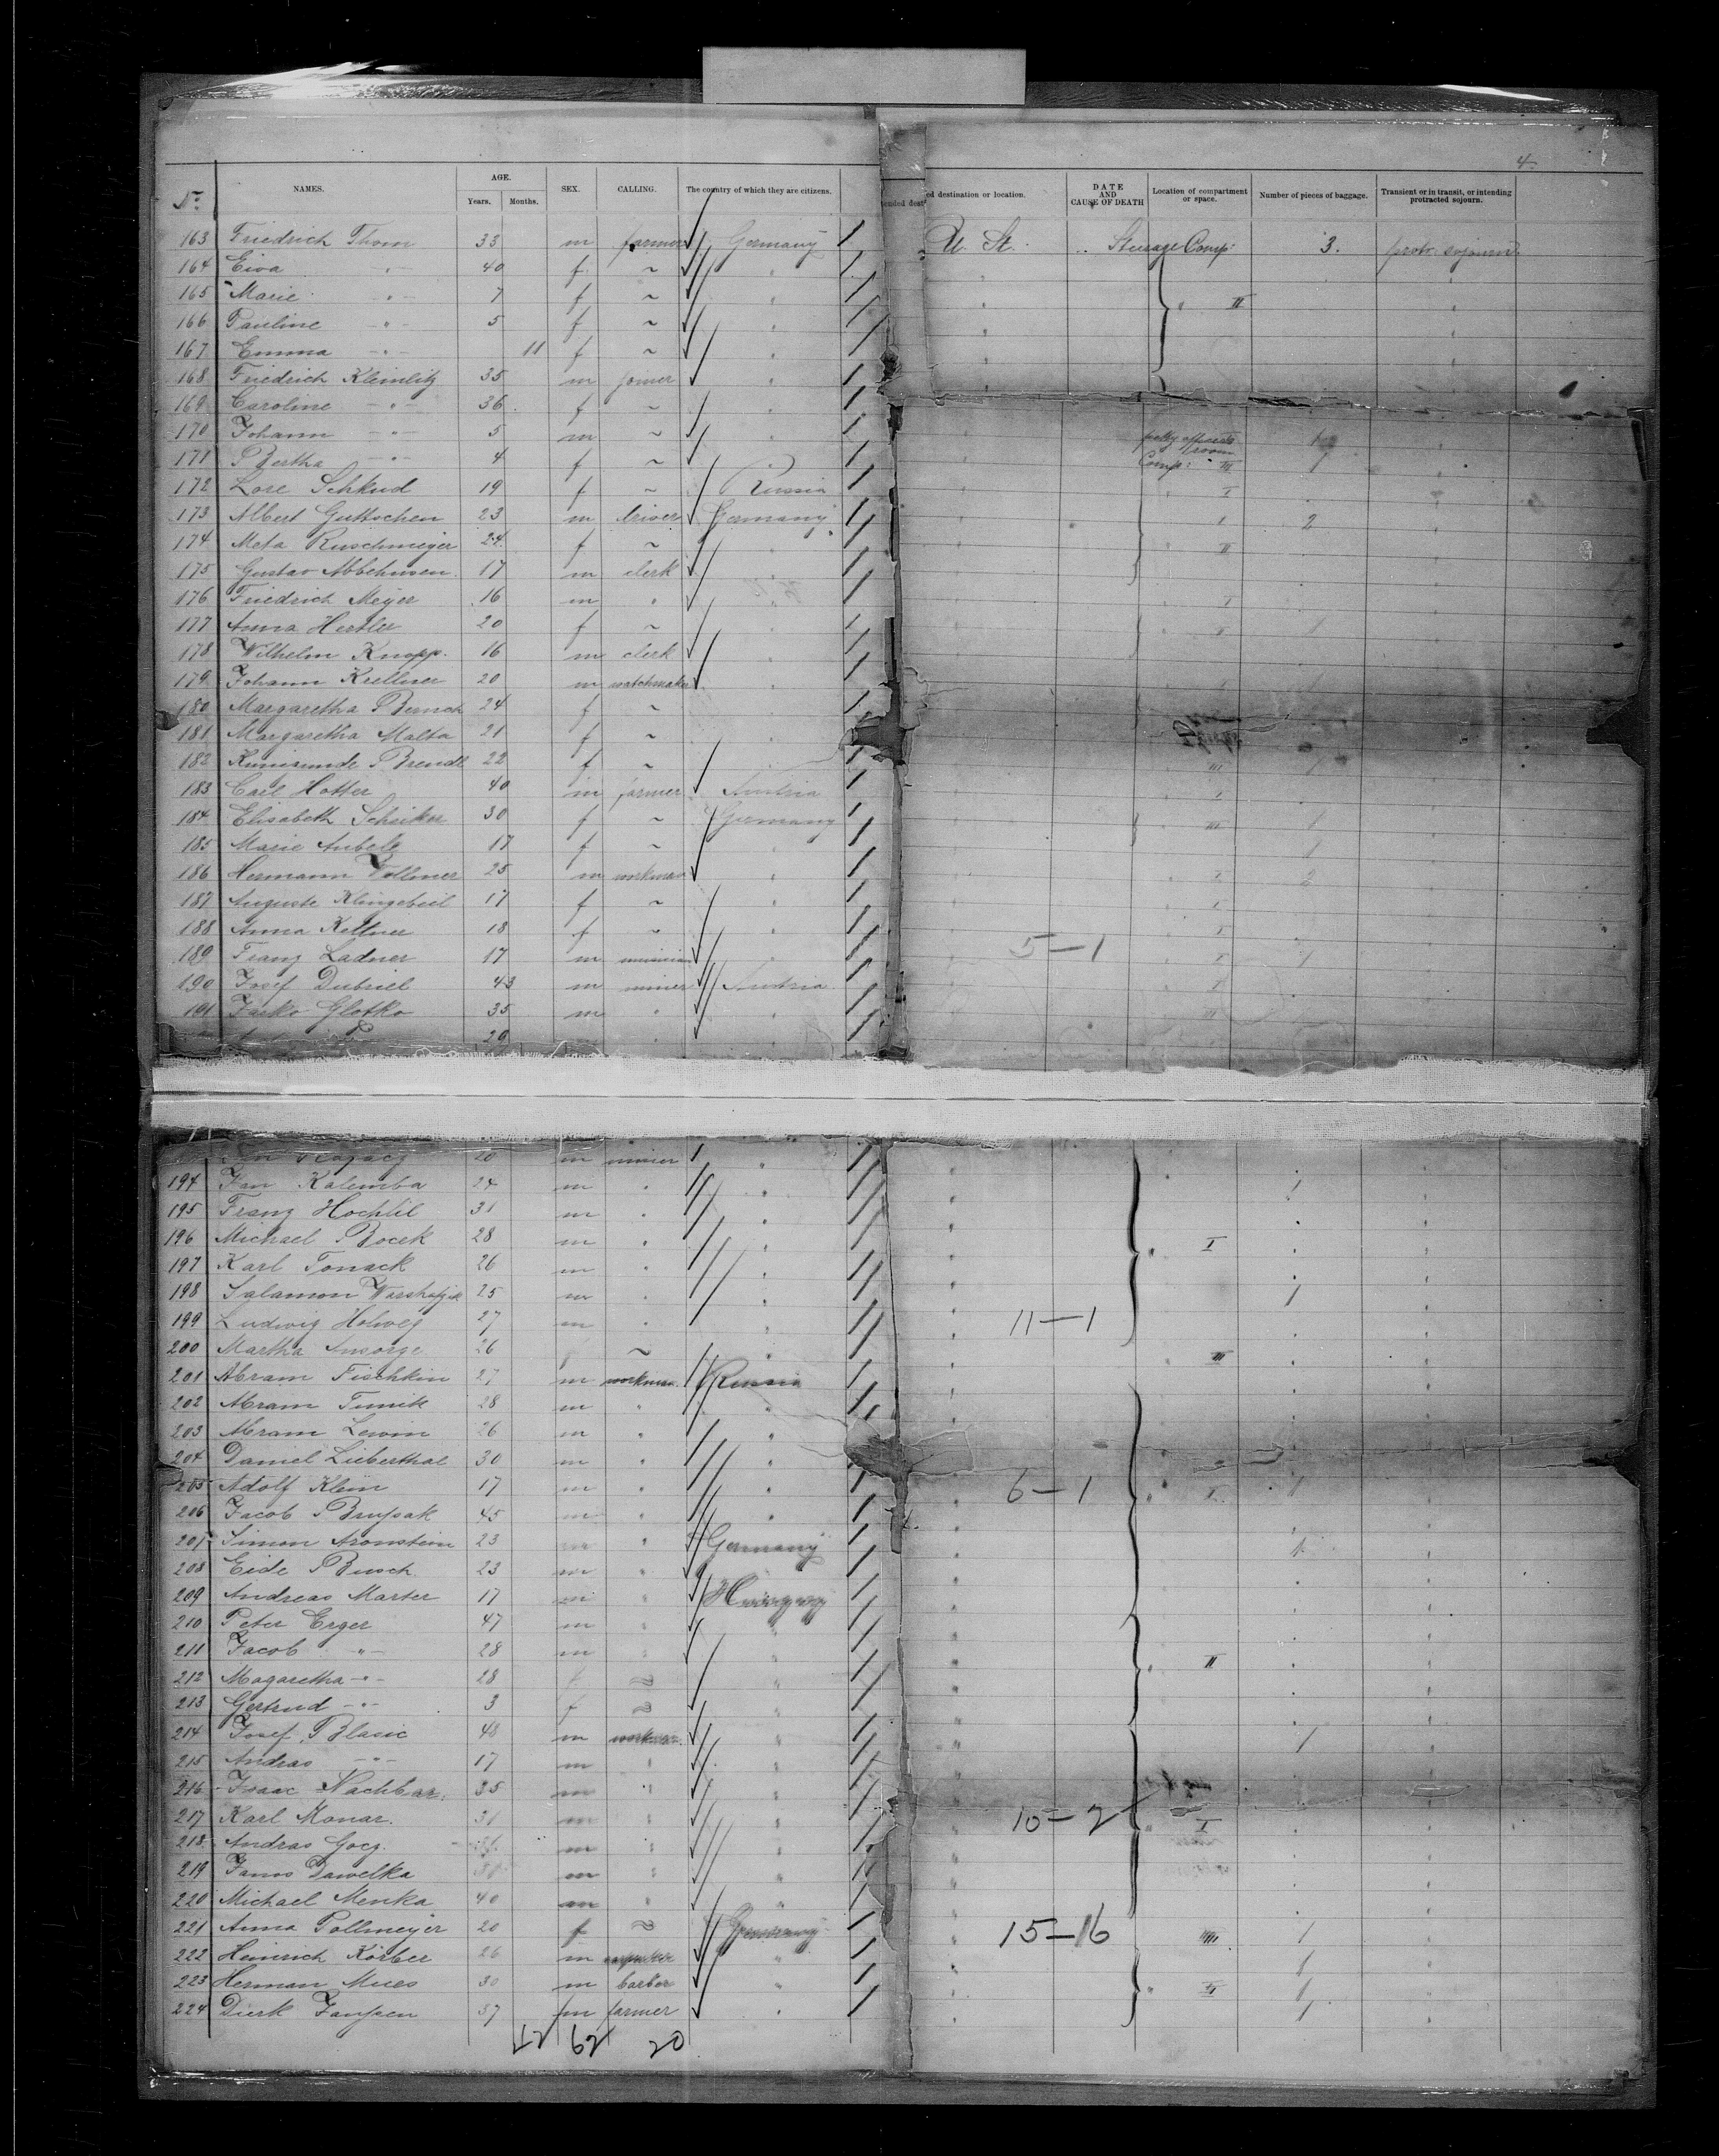 4.
No. NAMES. AGE. Years. Months. SEX. CALLING. The country of which they are citizens. ed destination or location. DATE AND CAUSE OF DEATH Location of compartment or space. Number of pieces of baggage. Transient or in transit, or intending protracted sojourn.
163 Friedrich Thom 33 m farmer Germany U. St. Steerage Comp: 3. protr. sojourn
164 Eva -"- 40 f ~ "
165 Marie -"- 7 f ~ " " III
166 Pauline -"- 5 f ~ "
167 Emma -"- 11 f ~ "
168 Friedrich Kleinlitz 35 m joiner "
169 Caroline -"- 36 f ~ "
170 Johann -"- 5 m ~ " petty officers room 1
171 Bertha -"- 4 f ~ " Comp: III 1
172 Lore Schkud 19 f ~ Russia " I
173 Albert Guttochen 23 m driver Germany " I 2
174 Meta Ruschmeijer 24 f ~ " II
175 Gustav Abbehusen 17 m clerk "
176 Friedrich Meijer 16 m " " I
177 Anna Hertler 20 f ~ " II 1
178 Wilhelm Knopp. 16 m clerk "
179 Johann Krellner 20 m watchmaker " I 1
180 Margaretha 24 f ~
181 Margaretha Malta 21 f ~
182 Brendl 22 f ~ III 1
183 Carl Hotter 40 m farmer Austria " I
184 Elisabeth Scheiker 30 f ~ Germany " III 1
185 Marie Aubele 17 f ~ " 1
186 Hermann Vollmer 25 m workman " " I 2
187 Auguste Klingebiel 17 f ~ " " I
188 Anna Kellner 18 f ~ " " I
189 Franz Ladner 17 m musician " 5-1 " I 1
190 Josef Dubiel 43 m miner Austria " I
191 Jasko Glotko 35 m " " III
29
20 m miner "
194 Jan Kalemba 24 m " " 1
195 Franz Hochlil 31 m " "
196 Michael Bocek 28 m " " " I
197 Karl Tonack 26 m " "
198 Salamon 25 m " " 1
199 Ludwig Holweg 27 m " " 11-1
200 Martha Ansorge 26 ~ " " III
201 Abram Fischkin 27 m workman Russia
202 Abram Tunik 28 m " "
203 Abram Lewin 26 m " "
204 Daniel Lieberthal 30 m " "
205 Adolf Klein 17 m " " 6-1 " I 1
206 Jacob 45 m " "
207 Simon Aronstein 23 m " Germany 1
208 Eide Busch 23 m "
209 Andreas Marter 17 m " Hungary
210 Peter Erger 47 m " "
211 Jacob -"- 28 m " "
212 Magaretha -"- 28 f ~ " " II
213 Gertrud -"- 3 f ~ "
214 Josef Blasic 48 m workman " 1
215 Andras -"- 17 m " "
216 Isaac Nachbar. 35 m " "
217 Karl Monar. 31 m " " 10-2 " I
218 Andras Gocz. m " "
219 Janos Dawelka m " "
220 Michael Menka 40 m " "
221 Anna Pollmeyer 20 f ~ Germany 15-16 III 1
222 Heinrich Körber 26 m carpenter " 1
223 Herman Mues 30 m barber " " 1
224 Dierk Janssen 37 m farmer " 1
62 20